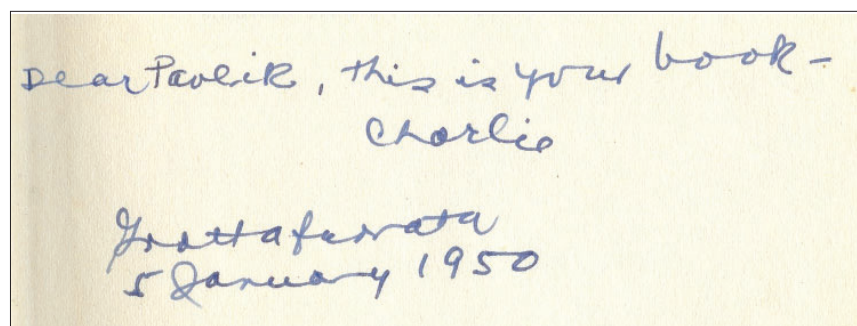 Dear Pavlik, this is your book -
Charlie
Grottaferrata
5 January 1950